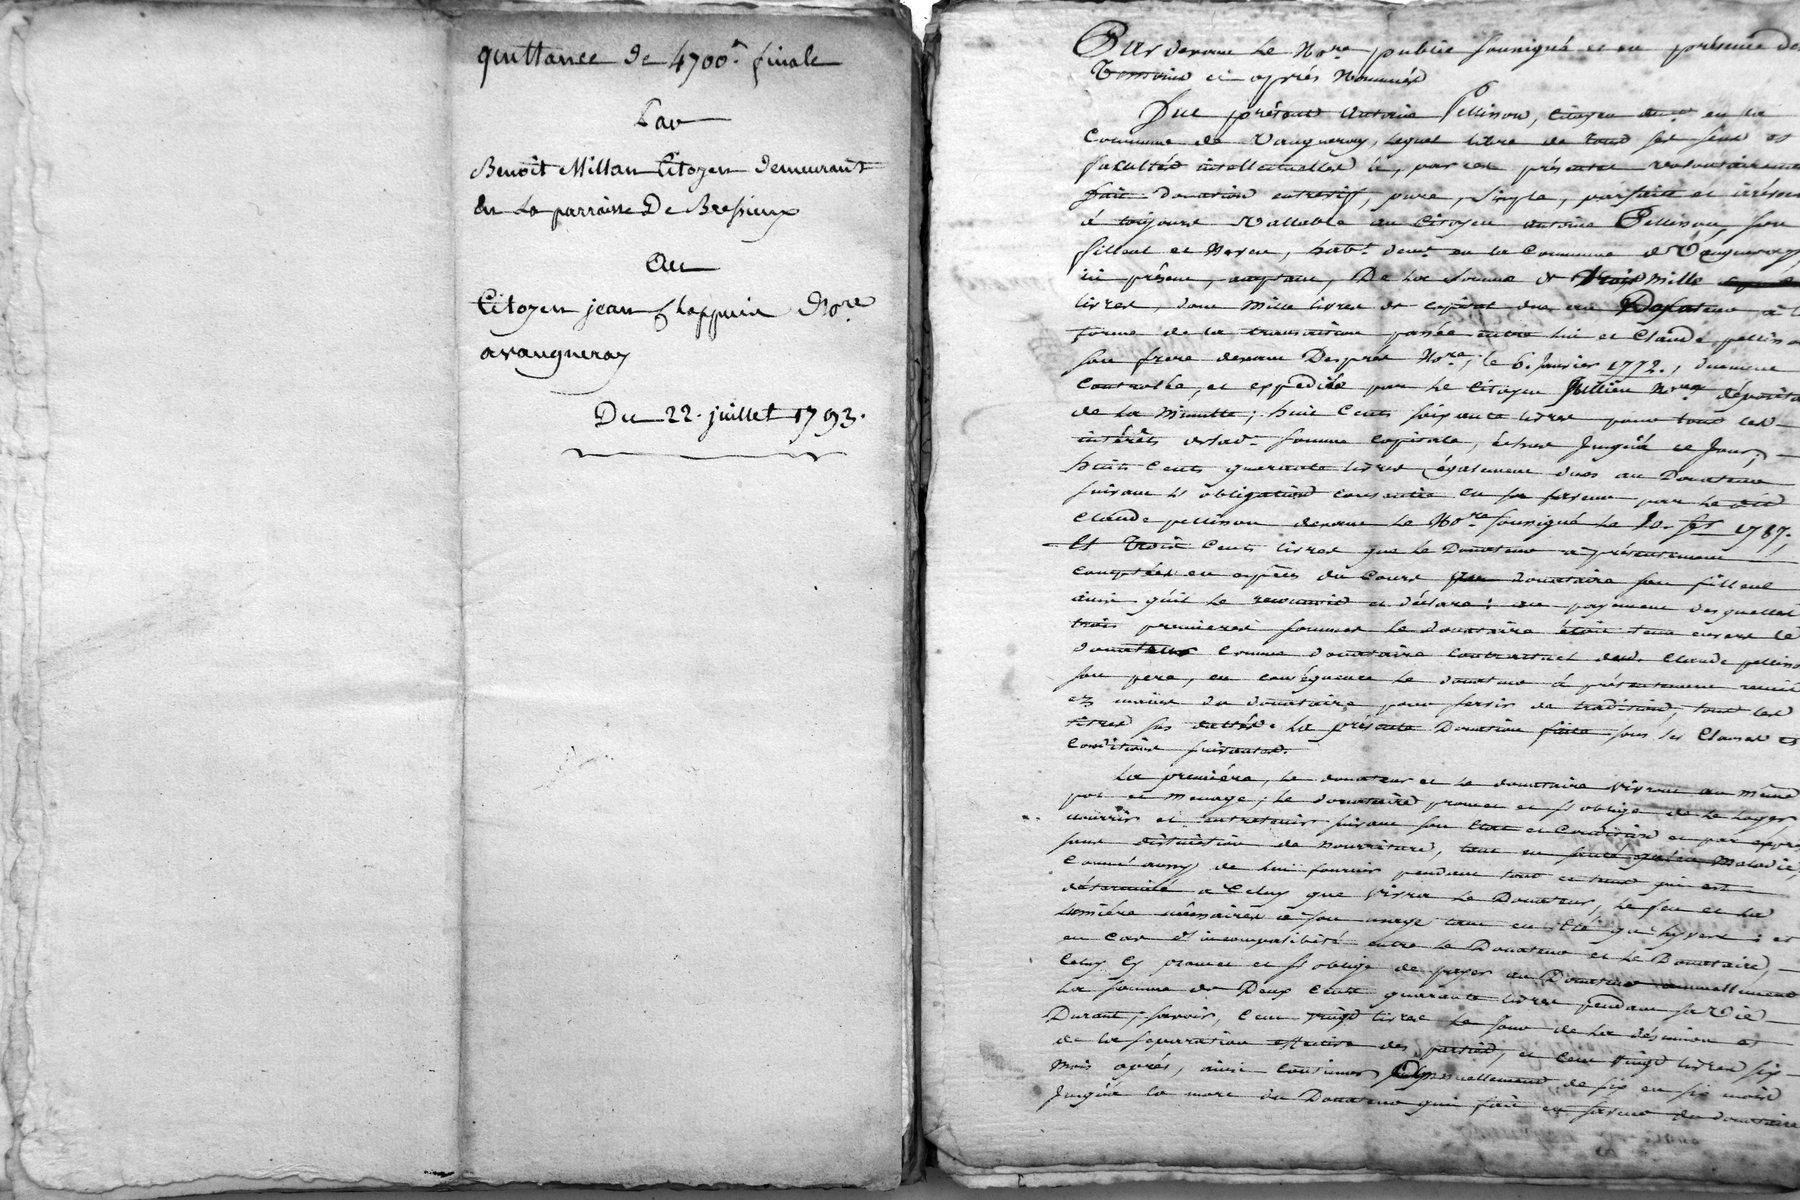 quittance de 4700.# finale
Par
Benoît Millan Citoyen demeurant
En La parroisse De Bressieux
Au
Citoyen jean Chappuis No.re
a vaugneray
Du 22. juillet 1793.
Par devant Le No.re public soussigné et en présence des
Temoins ci après Nommés
Fut présent Antoine Pellisson, Citoyen dem.t en la
Commune de Vaugneray, lequel libre de tous ses sens et
facultés intellectuelles a, par ces présentes volontairement
fait donation entrevifs, pure, simple, parfaite et
à toujours vallable au Citoyen Antoine Pellisson, son
filleul et Neveu, hab.t dem.t en la Commune de Vaugneray,
ici présent, acceptant, De la somme de trois mille
livres, dont Mille livres de capital dus au Donateur, à
forme de la transaction passée entre lui et Claude pellisson
son frere devant Després No.re, le 6. Janvier 1772., duement
Controllée, et expédiée par le Citoyen Jullien No.re dépositaire
de la Minutte; huit Cents soixante livres pour tous les
intérêts de lad.e somme Capitale, échus Jusqu'à ce Jour,
huit Cents quarante livres également dues au Donateur
suivant l'obligation consentie en sa faveur par le dit
Claude pellisson devant Le No.re soussigné Le 20. 1787;
Et trois Cents livres que le Donateur a présentement
comptées en espèces du Cours au donataire son filleul
ainsi qu'il le reconnoit et déclare: au payement desquelles
trois premieres sommes le donataire étoit tenu envers le
donateur comme donataire Contractuel dud. Claude pellisson
son pere, en conséquence le donateur a présentement remis
ez mains du donataire pour servir de tradition, tous les
titres sus dattés. La présente Donation faite sous les Clauses et
Conditions suivantes.
La premiére, le donateur et le donataire vivront au même
pot et menage; le donataire promet et s'oblige de le loger
nourrir et entretenir suivant son Etat et Condition
sans distinction de nourriture, tant en santé qu'en Maladie,
Comme aussy de lui fournir pendant tout ce tems qui est
déterminé a Celuy que vivra le Donateur, le feu et la
lumiére nécessaires à son usage tant en Eté qu'hyver: et
en Cas d'incompatibilité entre le Donateur et le Donataire,
Celuy cy promet et s'oblige de payer au Donateur annuellement
La somme de Deux Cents quarante livres pendant sa Vie
Durant, savoir, Cent vingt livres le Jour de la désunion et
de la separation effective des parties, et Cent vingt livres six
Mois après, ainsi Continuer annuellement de six en six mois
Jusqu'à la mort du Donateur qui fait en faveur du donataire